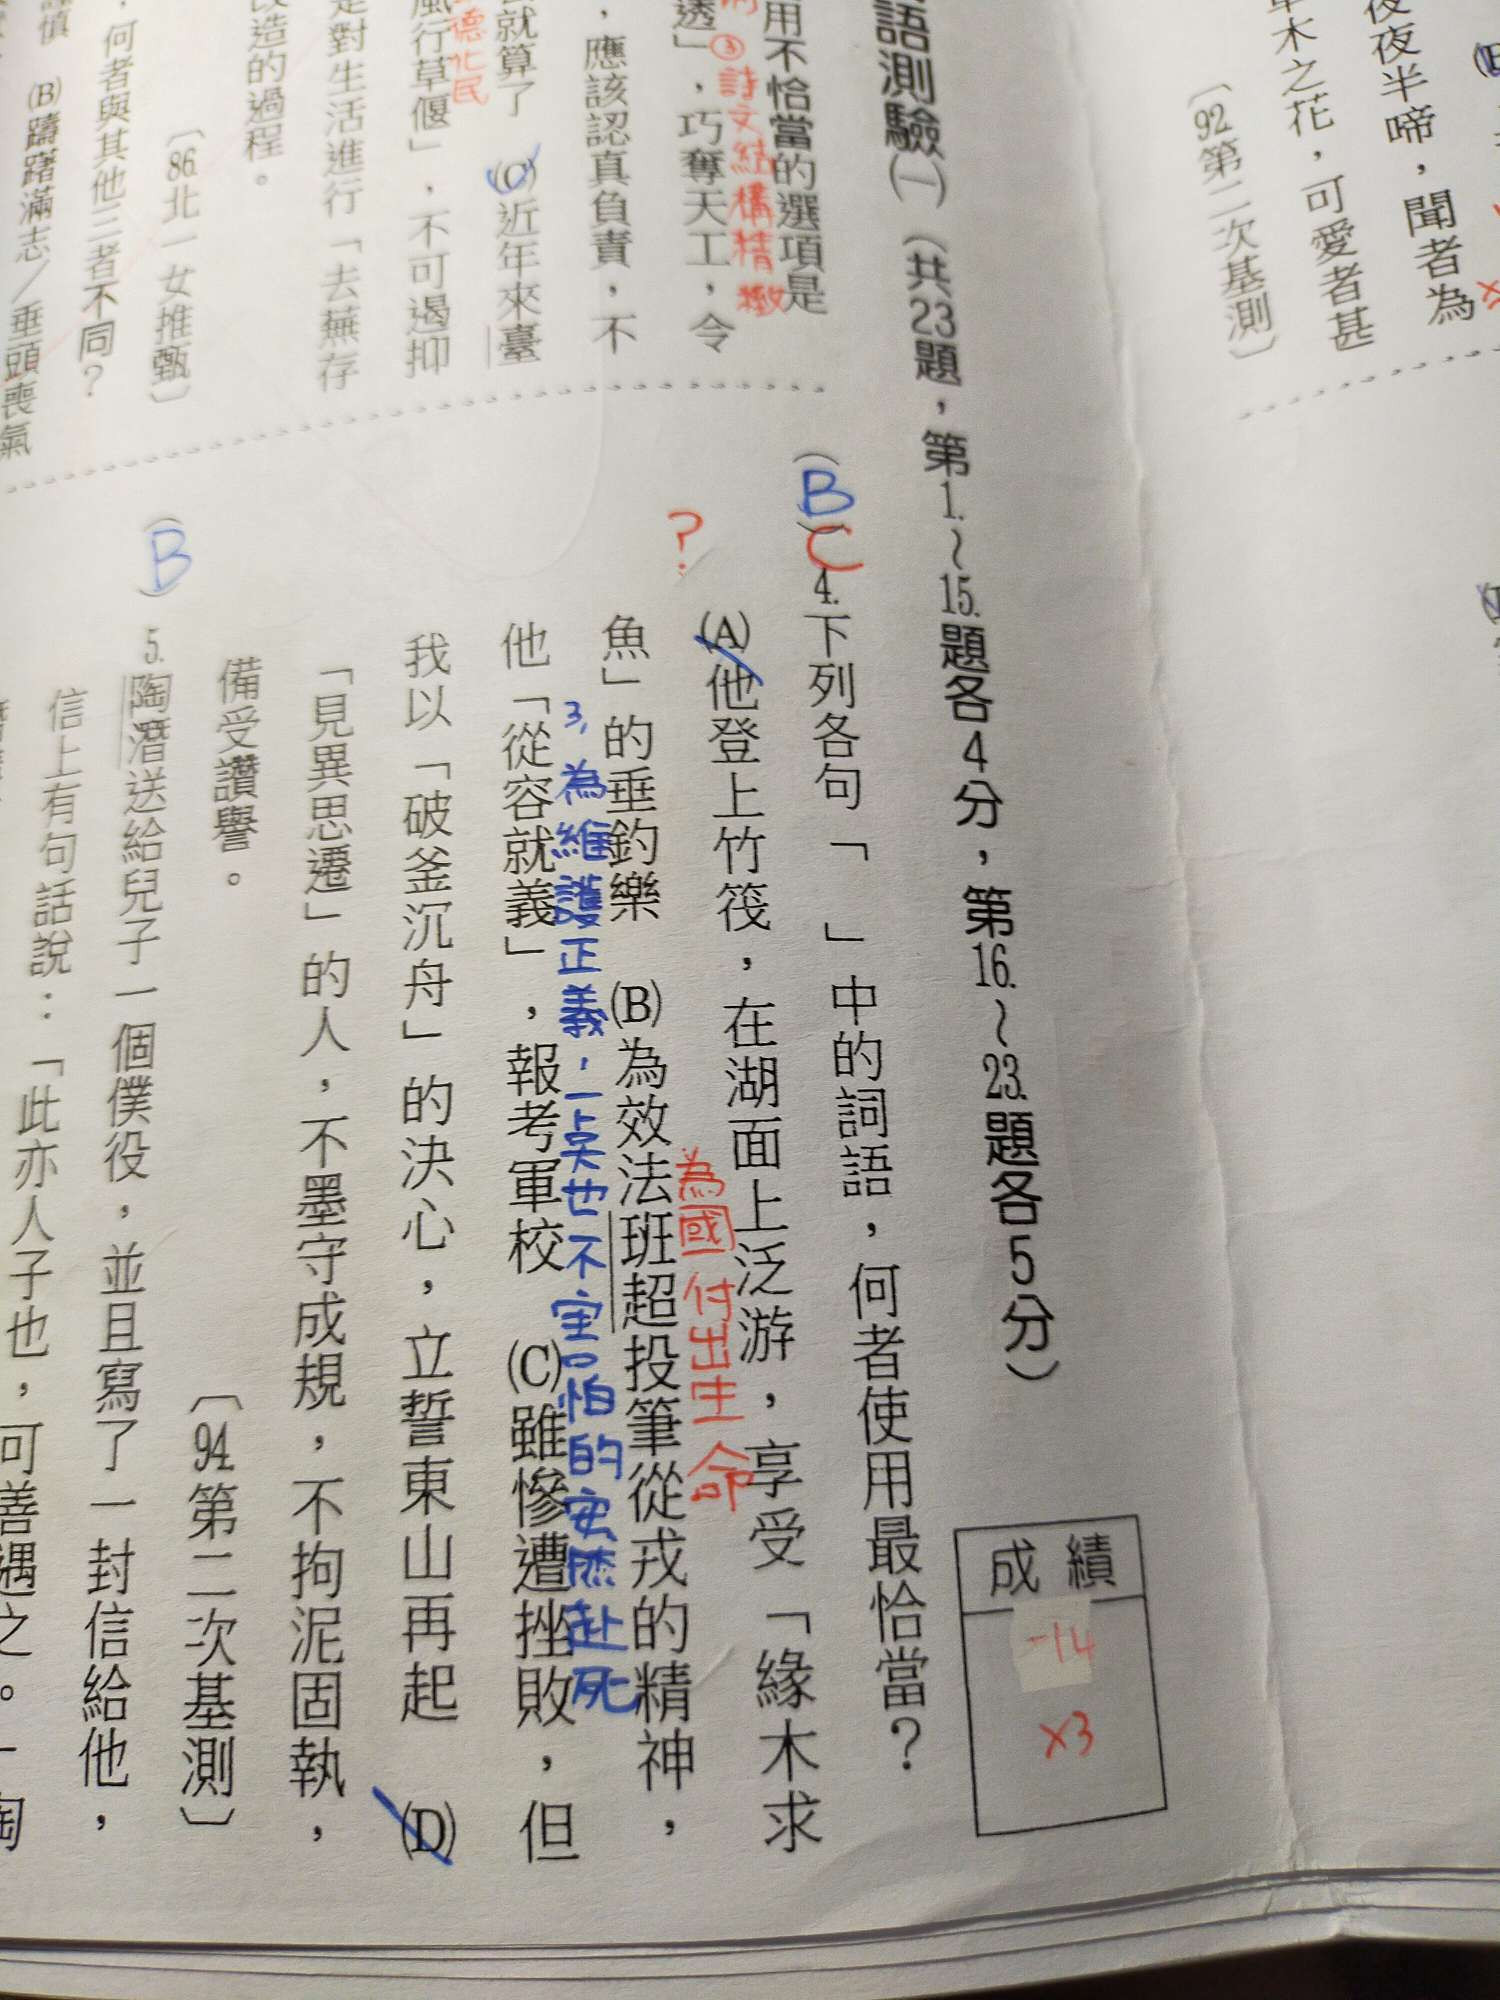 夜夜半啼，聞者為
草木之花，可愛者甚
〔92.第二次基測〕
語測驗㈠（共23題，第1.～15.題各4分，第16.～23.題各5分）
成績
-14
×3
用不恰當的選項是
③詩文結構精緻
透」，巧奪天工，令
，應該認真負責，不
就算了 (C)近年來臺
德化民
風行草偃」，不可遏抑
是對生活進行「去蕪存
改造的過程。
〔86.北一女推甄〕
，何者與其他三者不同？
慎 (B)躊躇滿志／垂頭喪氣
(B)C 4.下列各句「 」中的詞語，何者使用最恰當？
?
(A)他登上竹筏，在湖面上泛游，享受「緣木求
為國付出生命
魚」的垂釣樂 (B)為效法班超投筆從戎的精神，
3.為維護正義，一點也不害怕的安然赴死
他「從容就義」，報考軍校 (C)雖慘遭挫敗，但
我以「破釜沉舟」的決心，立誓東山再起 (D)
「見異思遷」的人，不墨守成規，不拘泥固執，
備受讚譽。
〔94.第二次基測〕
(B) 5.陶潛送給兒子一個僕役，並且寫了一封信給他，
信上有句話說：「此亦人子也，可善遇之。」陶